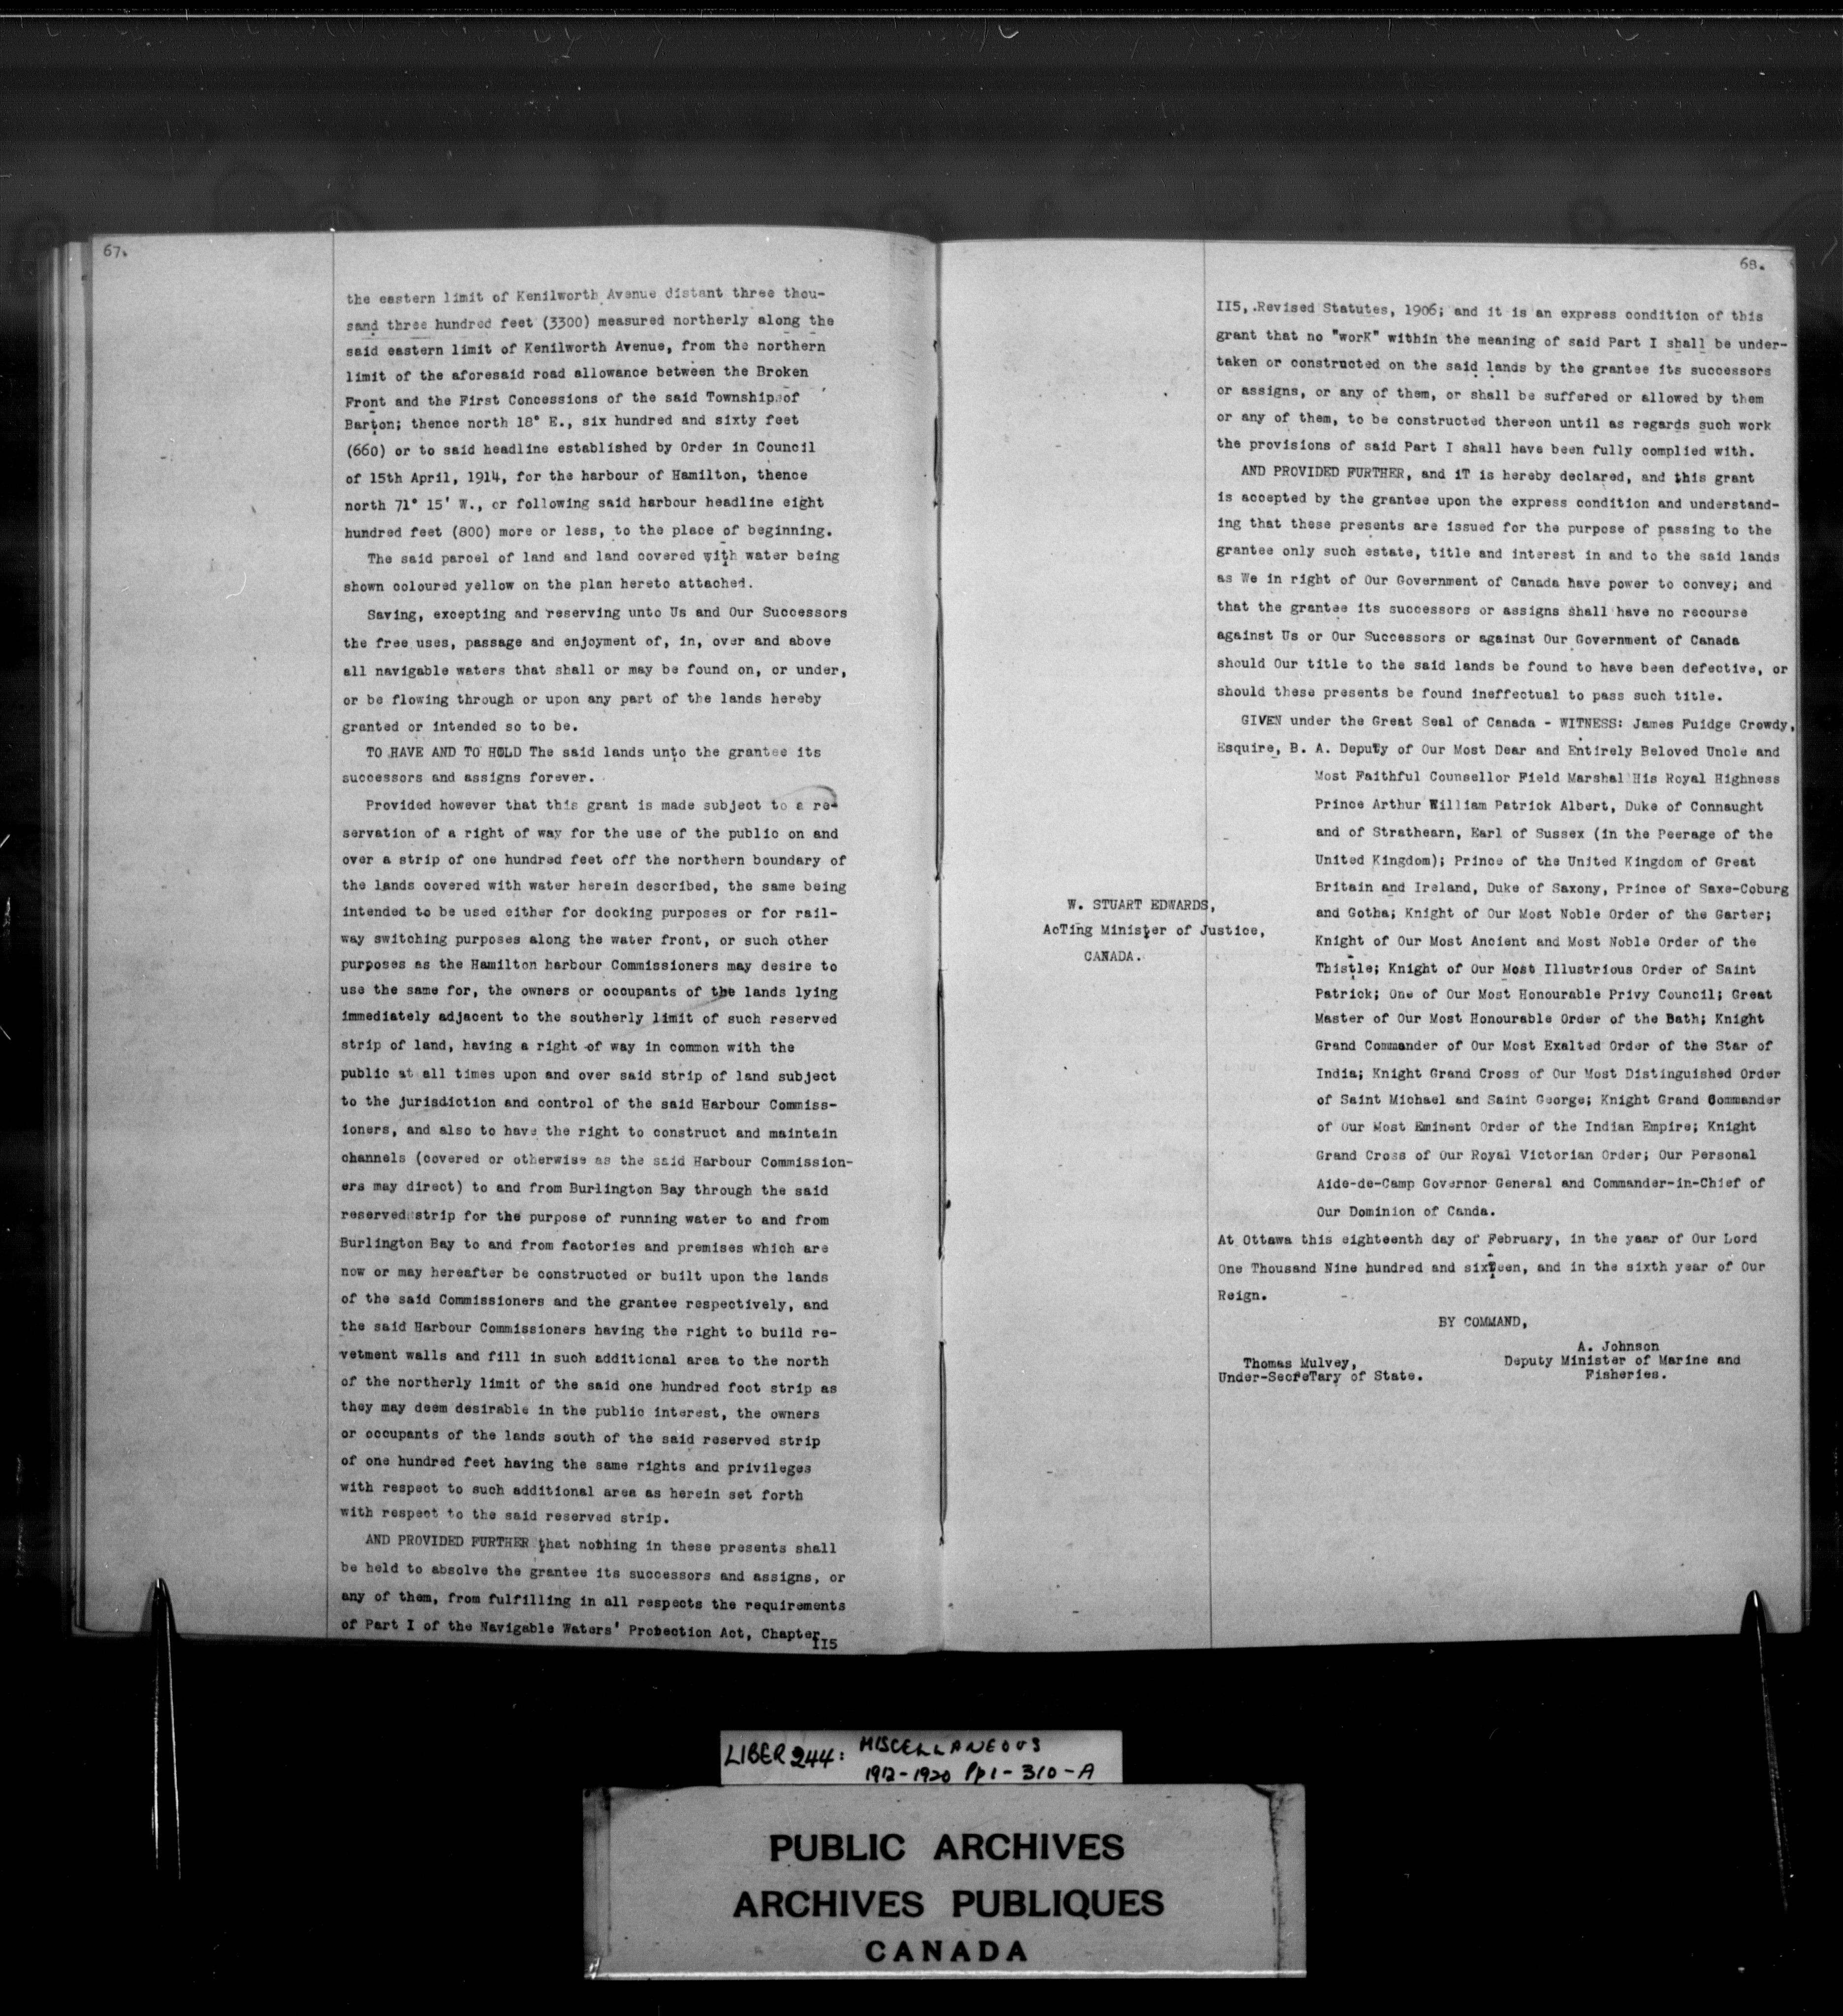 67.
the eastern limit of Kenilworth Avenue distant three thou-
sand three hundred feet (3300) measured northerly along the
said eastern limit of Kenilworth Avenue, from the northern
limit of the aforesaid road allowance between the Broken
Front and the First Concessions of the said Township of
Barton; thence north 18° E., six hundred and sixty feet
(660) or to said headline established by Order in Council
of 15th April, 1914, for the harbour of Hamilton, thence
north 71° 15' W., or following said harbour headline eight
hundred feet (800) more or less, to the place of beginning.
The said parcel of land and land covered with water being
shown coloured yellow on the plan hereto attached.
Saving, excepting and reserving unto Us and Our Successors
the free uses, passage and enjoyment of, in, over and above
all navigable waters that shall or may be found on, or under,
or be flowing through or upon any part of the lands hereby
granted or intended so to be.
TO HAVE AND TO HOLD The said lands unto the grantee its
successors and assigns forever.
Provided however that this grant is made subject to a re-
servation of a right of way for the use of the public on and
over a strip of one hundred feet off the northern boundary of
the lands covered with water herein described, the same being
intended to be used either for docking purposes or for rail-
way switching purposes along the water front, or such other
purposes as the Hamilton harbour Commissioners may desire to
use the same for, the owners or occupants of the lands lying
immediately adjacent to the southerly limit of such reserved
strip of land, having a right of way in common with the
public at all times upon and over said strip of land subject
to the jurisdiction and control of the said Harbour Commiss-
ioners, and also to have the right to construct and maintain
channels (covered or otherwise as the said Harbour Commission-
ers may direct) to and from Burlington Bay through the said
reserved strip for the purpose of running water to and from
Burlington Bay to and from factories and premises which are
now or may hereafter be constructed or built upon the lands
of the said Commissioners and the grantee respectively, and
the said Harbour Commissioners having the right to build re-
vetment walls and fill in such additional area to the north
of the northerly limit of the said one hundred foot strip as
they may deem desirable in the public interest, the owners
or occupants of the lands south of the said reserved strip
of one hundred feet having the same rights and privileges
with respect to such additional area as herein set forth
with respect to the said reserved strip.
AND PROVIDED FURTHER that nothing in these presents shall
be held to absolve the grantee its successors and assigns, or
any of them, from fulfilling in all respects the requirements
of Part I of the Navigable Waters' Protection Act, Chapter
II5
68.
II5, Revised Statutes, 1906; and it is an express condition of this
grant that no "worK" within the meaning of said Part I shall be under-
taken or constructed on the said lands by the grantee its successors
or assigns, or any of them, or shall be suffered or allowed by them
or any of them, to be constructed thereon until as regards such work
the provisions of said Part I shall have been fully complied with.
AND PROVIDED FURTHER, and iT is hereby declared, and this grant
is accepted by the grantee upon the express condition and understand-
ing that these presents are issued for the purpose of passing to the
grantee only such estate, title and interest in and to the said lands
as We in right of Our Government of Canada have power to convey; and
that the grantee its successors or assigns shall have no recourse
against Us or Our Successors or against Our Government of Canada
should Our title to the said lands be found to have been defective, or
should these presents be found ineffectual to pass such title.
GIVEN under the Great Seal of Canada - WITNESS: James Fuidge Crowdy,
Esquire, B. A. Deputy of Our Most Dear and Entirely Beloved Uncle and
Most Faithful Counsellor Field Marshal His Royal Highness
Prince Arthur William Patrick Albert, Duke of Connaught
and of Strathearn, Earl of Sussex (in the Peerage of the
United Kingdom); Prince of the United Kingdom of Great
Britain and Ireland, Duke of Saxony, Prince of Saxe-Coburg
and Gotha; Knight of Our Most Noble Order of the Garter;
Knight of Our Most Ancient and Most Noble Order of the
Thistle; Knight of Our Most Illustrious Order of Saint
Patrick; One of Our Most Honourable Privy Council; Great
Master of Our Most Honourable Order of the Bath; Knight
Grand Commander of Our Most Exalted Order of the Star of
India; Knight Grand Cross of Our Most Distinguished Order
of Saint Michael and Saint George; Knight Grand Commander
of Our Most Eminent Order of the Indian Empire; Knight
Grand Cross of Our Royal Victorian Order; Our Personal
Aide-de-Camp Governor General and Commander-in-Chief of
Our Dominion of Canda.
W. STUART EDWARDS,
AcTing Minister of Justice,
CANADA.
At Ottawa this eighteenth day of February, in the yaar of Our Lord
One Thousand Nine hundred and sixteen, and in the sixth year of Our
Reign.
BY COMMAND,
Thomas Mulvey,
Under-SecreTary of State.
A. Johnson
Deputy Minister of Marine and
Fisheries.
LIBER 244: MISCELLANEOUS
1912-1920 Pp 1-310-A
PUBLIC ARCHIVES
ARCHIVES PUBLIQUES
CANADA